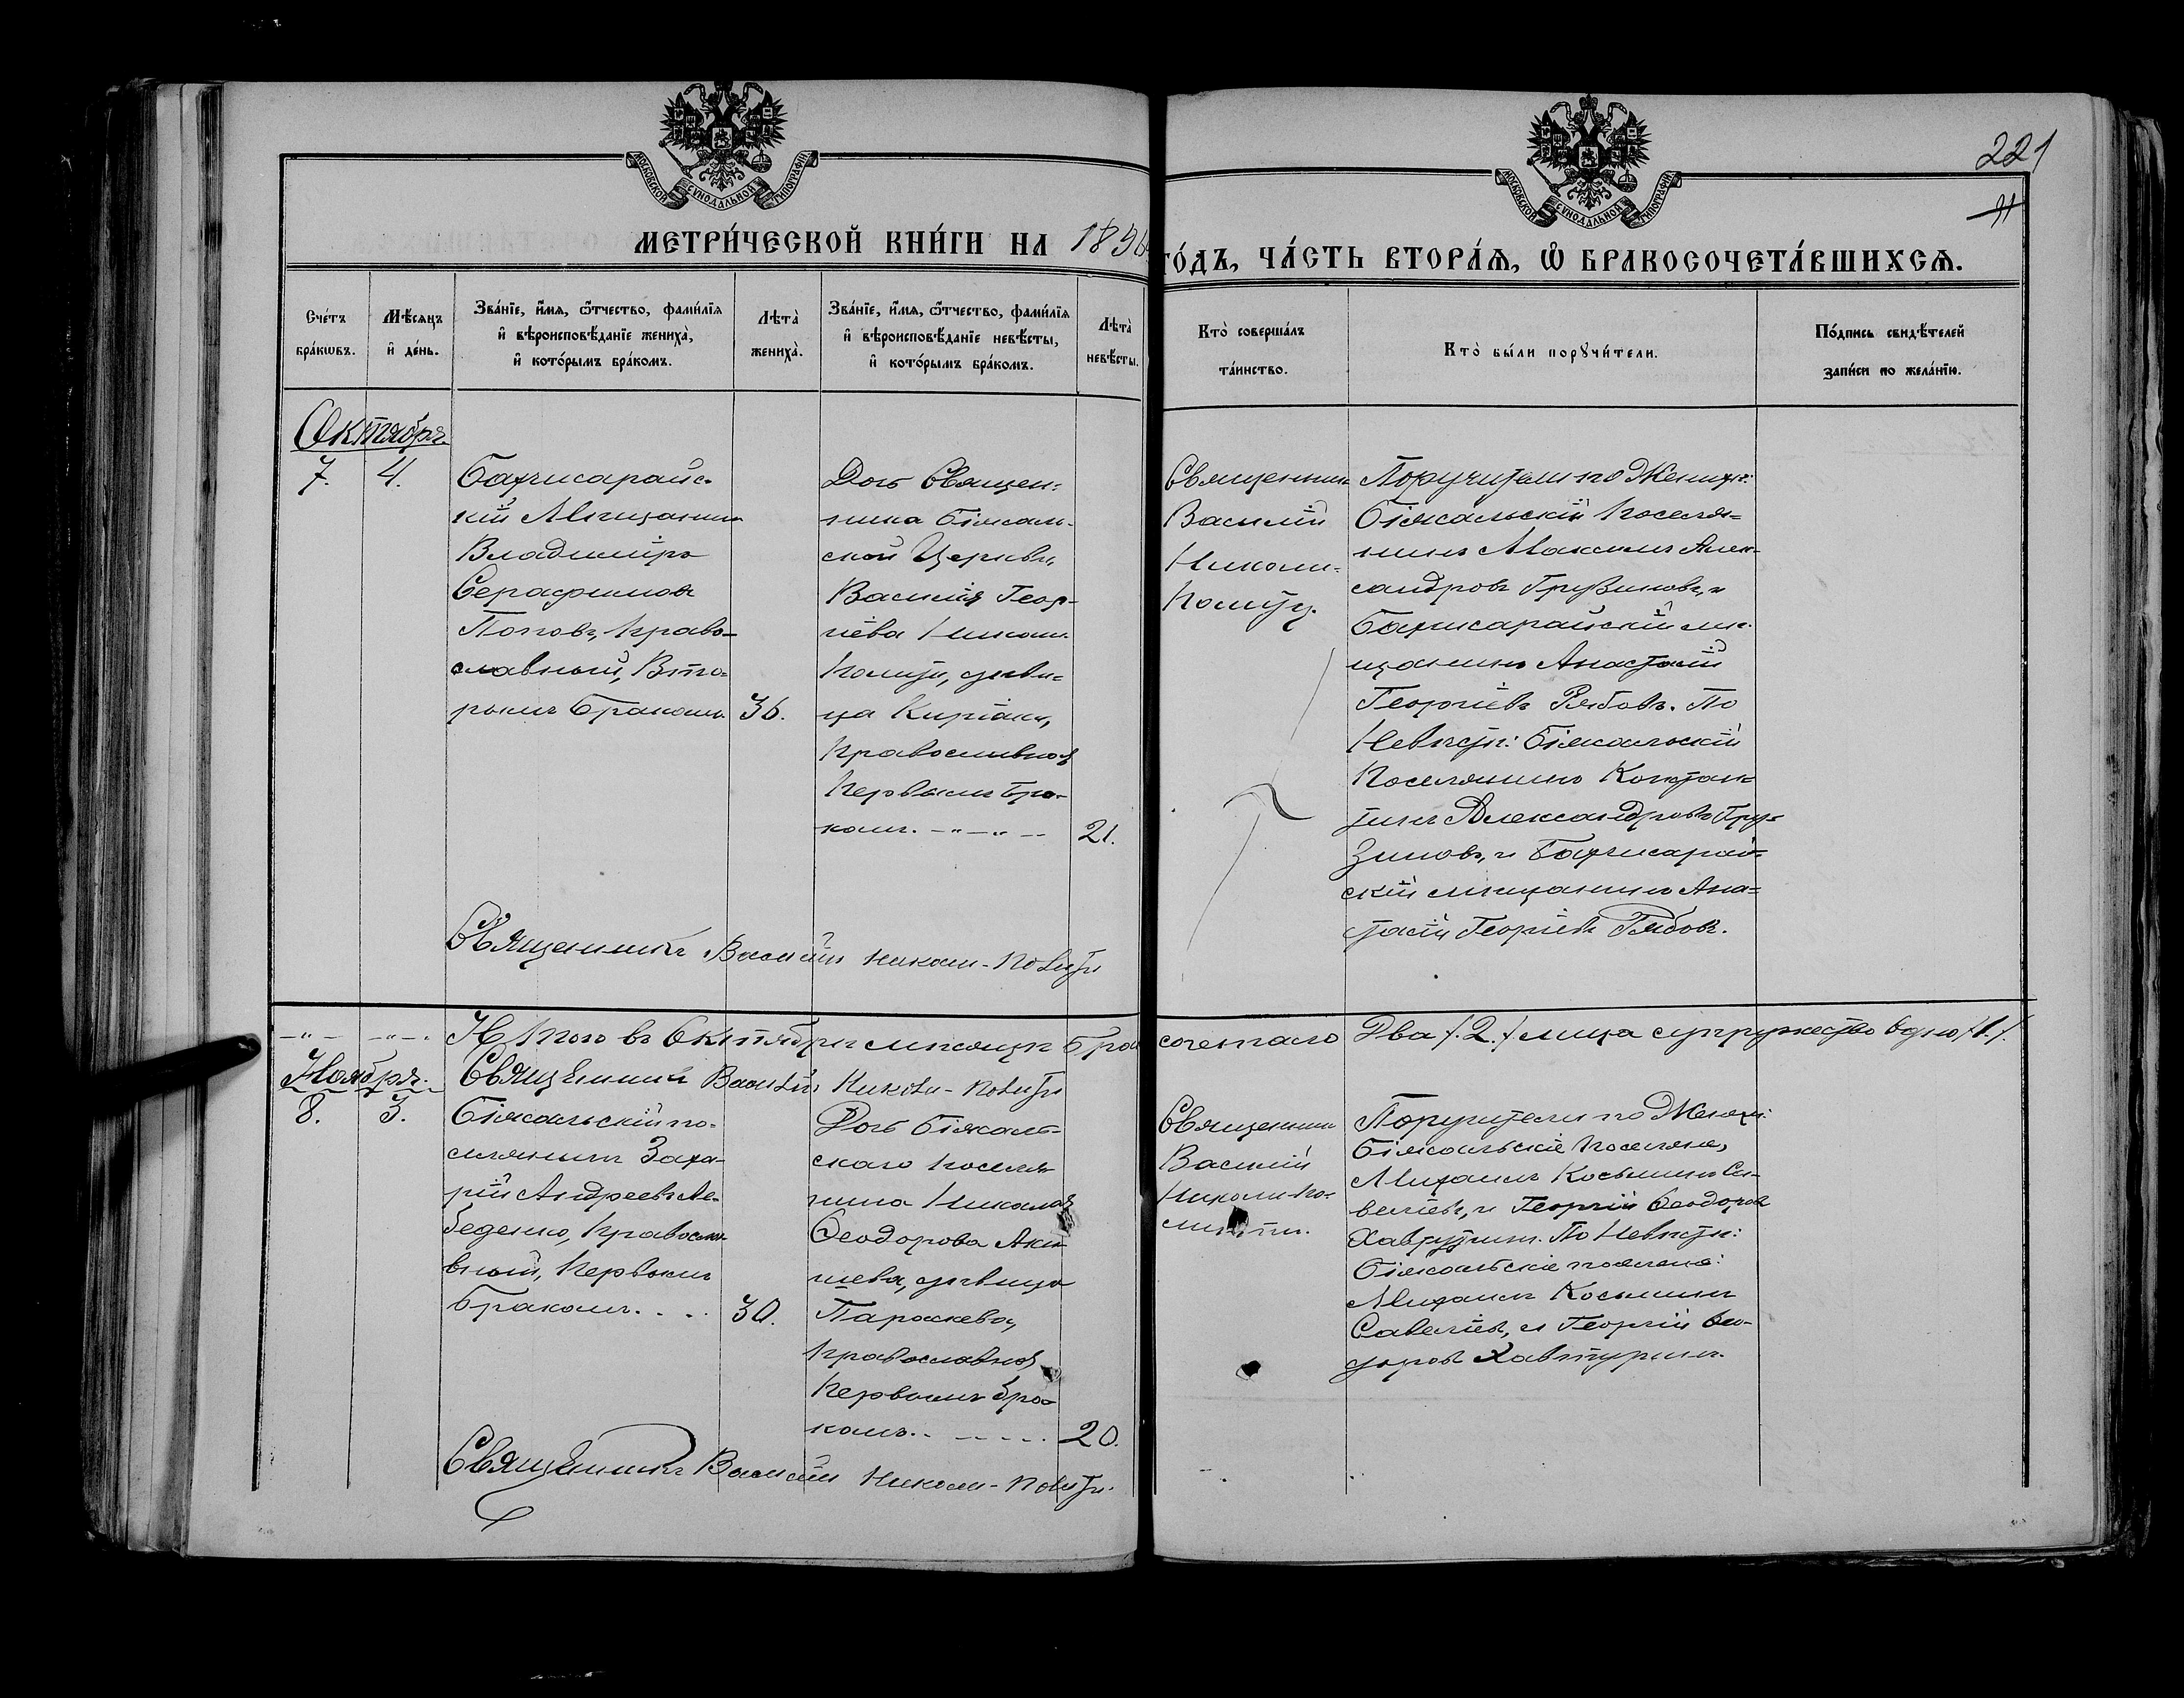 221
11
МОСКОВСКОЙ СУНОДАЛЬНОЙ ТИПОГРАФІИ
МОСКОВСКОЙ СУНОДАЛЬНОЙ ТИПОГРАФІИ
МЕТРИ́ЧЕСКОЙ КНИ́ГИ НА
ГО́ДЪ, ЧА́СТЬ ВТОРА́Ѧ, Ѽ БРАКОСОЧЕТА́ВШИХСѦ.
Сче́тъ бра́кѡвъ.
Мѣ́сѧцъ и҆ де́нь.
Зва́нїе, и҆́мѧ, ѻ҆́тчество, фами́лїѧ
и҆ вѣроисповѣ́данїе жениха̀,
и҆ кото́рымъ бра́комъ.
Лѣта̀ жениха̀.
Зва́нїе, и҆́мѧ, ѻ҆́тчество, фами́лїѧ
и҆ вѣроисповѣ́данїе невѣ́сты,
и҆ кото́рымъ бра́комъ.
Лѣта̀ невѣ́сты.
Кто̀ соверша́лъ
та́инство.
Кто̀ бы́ли порꙋчи́тели.
По́дпись свидѣ́телей
за́писи по жела́нїю.
Октябрь.
7.
4.
Бахчисарайс-
кій Мѣщанинъ
Владиміръ
Серафимовъ
Поповъ, право-
славный, Вто-
рымъ бракомъ
36.
Дочь Священ-
ника Біясаль-
ской Церкви,
Василія Геор-
гіева Николи-
Полити, дѣви-
ца Киріаки,
православная
первымъ бра-
комъ.
21.
Священникъ
Василій
Николи-
Полити.
Поручители по Женихѣ:
Біясальскій поселя-
нинъ Максимъ Алек-
сандровъ Грузиновъ, и
Бахчисарайскій мѣ-
щанинъ Анастасій
Георгіевъ Рябовъ. По
Невѣстѣ: Біясальскій
поселянинъ Констан-
тинъ Александровъ Гру-
зиновъ, и Бахчисарай-
скій мѣщанинъ Ана-
стасій Георгіевъ Рябовъ.
Священникъ Василій Николи-Полити
Итого въ Октябрѣ мѣсяцѣ бра
сочетало Два /.2./ лица супружество одно /1./.
Священникъ Василій Николи-Полити
Ноябрь.
8.
3.
Біясальскій по-
селянинъ Заха-
рій Андреевъ Ле-
беденко, православ-
вный, первымъ
бракомъ. . . .
30.
Дочь Біясаль-
скаго поселя-
нина Николая
Ѳеодорова Аки-
шева, дѣвица
Параскева,
православная
первымъ бра-
комъ.
20.
Священникъ
Василій
Николи-По-
лити.
Поручители по Женихѣ:
Біясальскіе поселяне,
Михаилъ Косьминъ Са-
веліевъ, и Георгій Ѳеодоровъ
Хавтуринъ. По Невѣстѣ:
Біясальскіе поселяне:
Михаилъ Косьминъ
Савеліевъ, и Георгій Ѳео-
доровъ Хавтуринъ.
Священникъ Василій Николи-Полити.